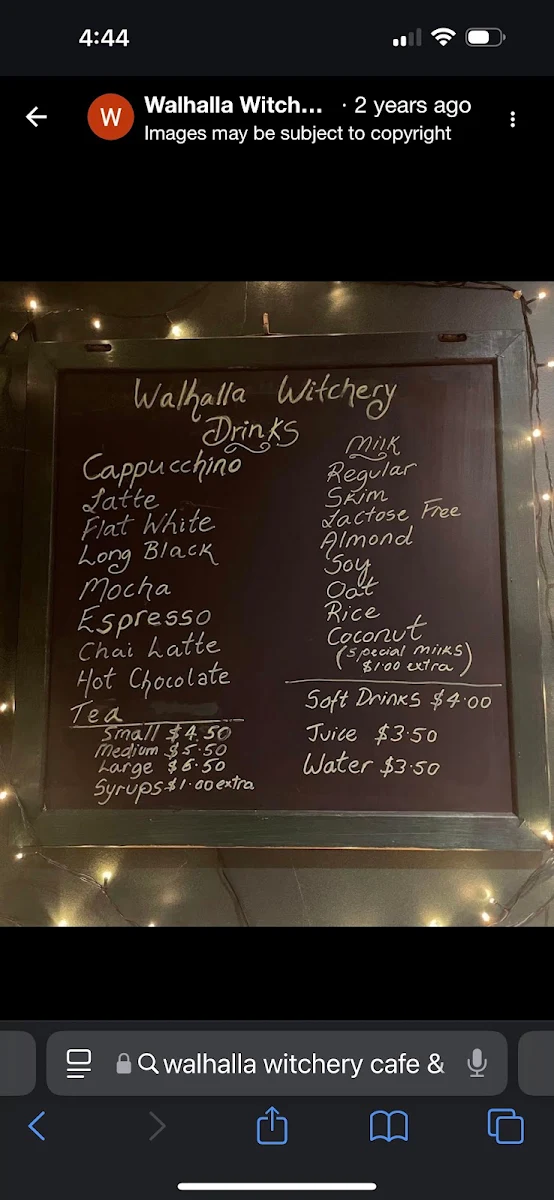 4:44
Walhalla Witch... · 2 years ago
W
Images may be subject to copyright
Walhalla Witchery
Drinks
Cappucchino
Latte
Flat White
Long Black
Mocha
Espresso
Chai Latte
Hot Chocolate
Tea
Small $4.50
Medium $5.50
Large $6.50
Syrups $1.00 extra
Milk
Regular
Skim
Lactose Free
Almond
Soy
Oat
Rice
Coconut
(special milks
$1.00 extra)
Soft Drinks $4.00
Juice $3.50
Water $3.50
walhalla witchery cafe &